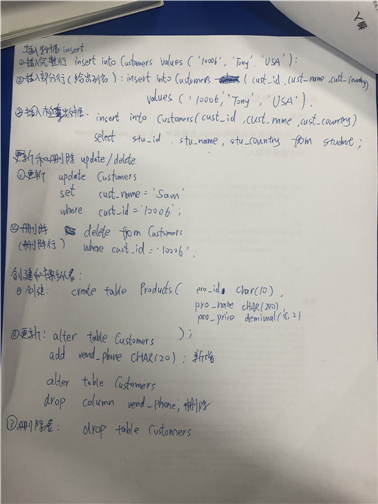 插入数据 insert
①插入完整行 insert into Customers values ('10006', 'Tony', 'USA');
②插入部分行(给出列名): insert into Customers (cust_id, cust_name, cust_country)
values ('10006', 'Tony', 'USA');
③插入 insert into Customers(cust_id, cust_name, cust_country)
select stu_id, stu_name, stu_country from student;
更新和删除 update/delete
①更新 update Customers
set cust_name='Sam'
where cust_id='10006';
②删除 delete from Customers
(删除行) where cust_id='10006';
创建和操纵表:
①创建: create table Products( pro_id char(10),
pro_name CHAR(200),
pro_price
);
②更新: alter table Customers
add vend_phone CHAR(20); 新增
alter table Customers
drop column vend_phone; 删除
③删除表: drop table Customers